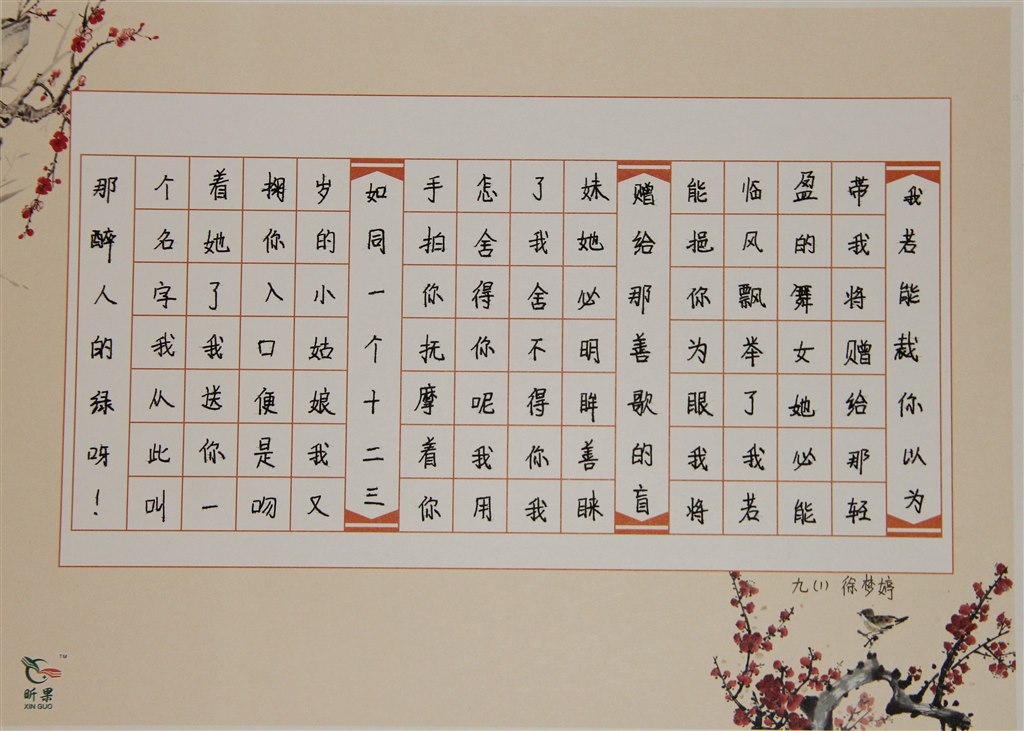 我若能裁你以为
带我将赠给那轻
盈的舞女她必能
临风飘举了我若
能挹你为眼我将
赠给那善歌的盲
妹她必明眸善睐
了我舍不得你我
怎舍得你呢我用
手拍你抚摩着你
如同一个十二三
岁的小姑娘我又
掬你入口便是吻
着她了我送你一
个名字我从此叫
那醉人的绿呀！
九(1) 徐梦婷
昕果
XIN GUO
TM